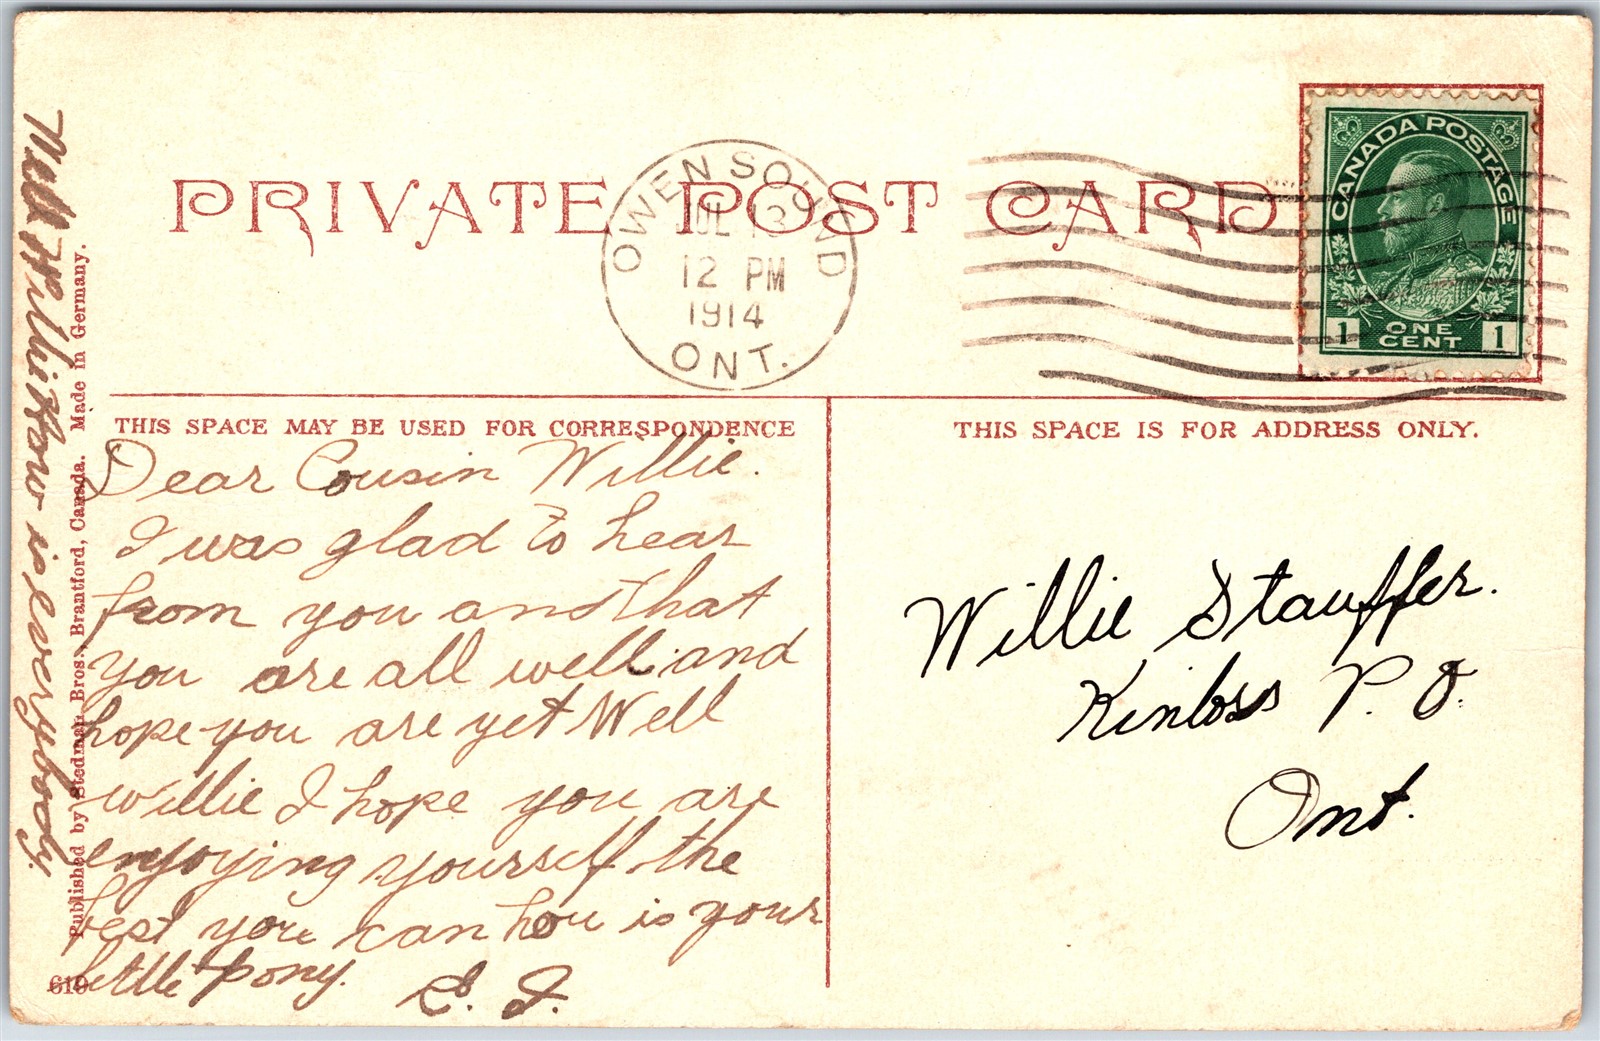 PRIVATE POST CARD
OWEN SOUND
JUL 13
12 PM
1914
ONT.
CANADA POSTAGE
1 ONE CENT 1
THIS SPACE MAY BE USED FOR CORRESPONDENCE
THIS SPACE IS FOR ADDRESS ONLY.
Dear Cousin Willie.
I was glad to hear
from you and that
you are all well and
hope you are yet Well
Willie I hope you are
enjoying yourself the
best you can hou is your
little pony.
E. J.
Well Willie How is everybody
Published by Stedman Bros., Brantford, Canada. Made in Germany.
619
Willie Stauffer.
Kinloss P. O.
Ont.